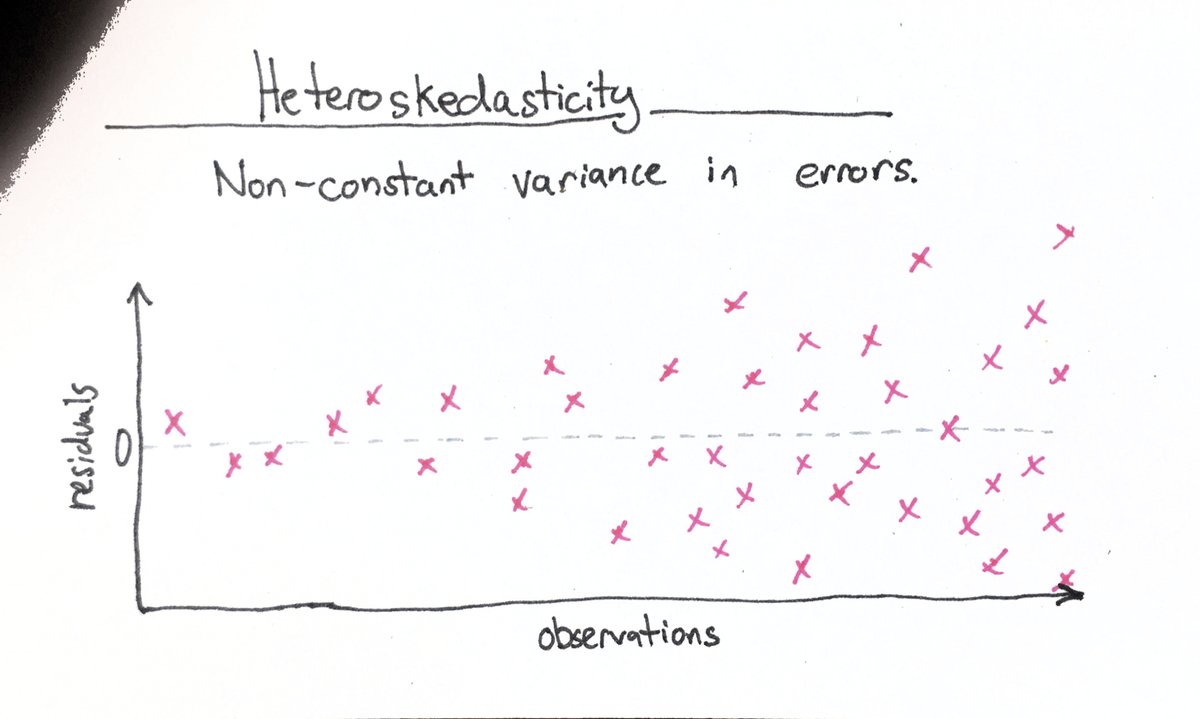 Heteroskedasticity
Non-constant variance in errors.
residuals
0
observations